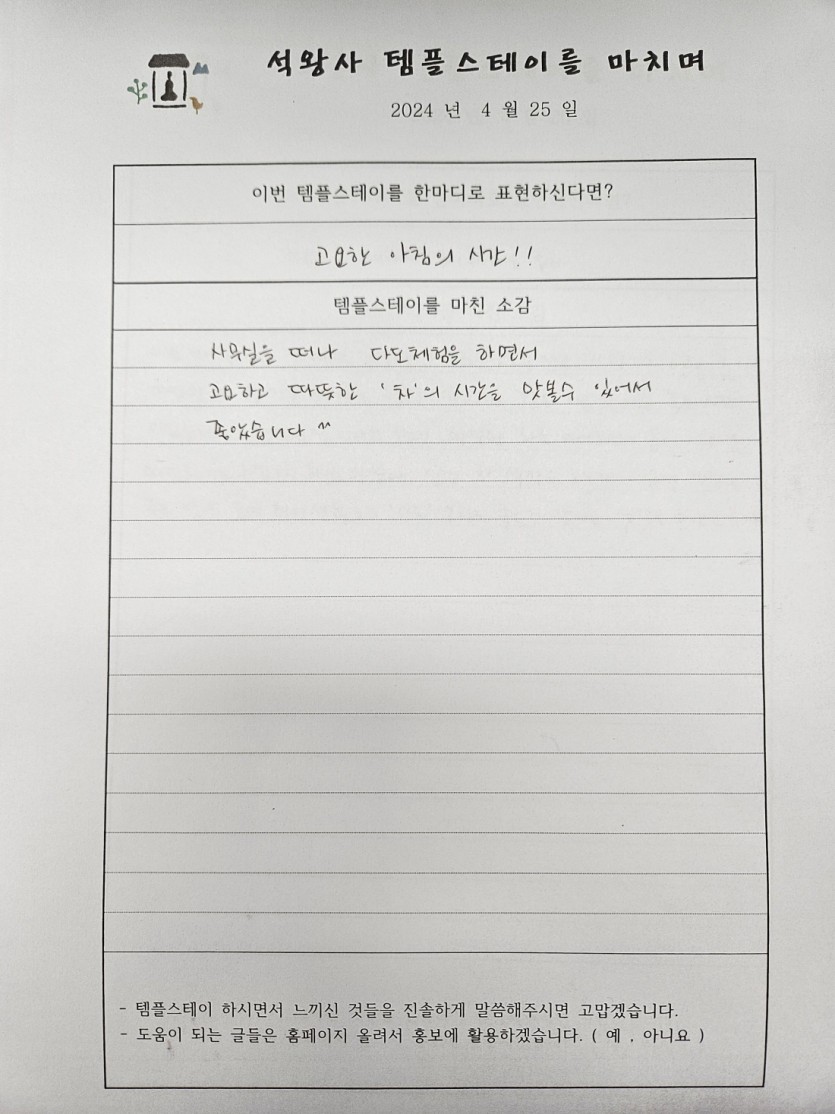 석왕사 템플스테이를 마치며
2024 년 4 월 25 일
이번 템플스테이를 한마디로 표현하신다면?
고요한 아침의 시간!!
템플스테이를 마친 소감
사무실을 떠나 다도체험을 하면서
고요하고 따뜻한 '차'의 시간을 맛볼수 있어서
좋았습니다 ^^
- 템플스테이 하시면서 느끼신 것들을 진솔하게 말씀해주시면 고맙겠습니다.
- 도움이 되는 글들은 홈페이지 올려서 홍보에 활용하겠습니다. ( 예 , 아니요 )